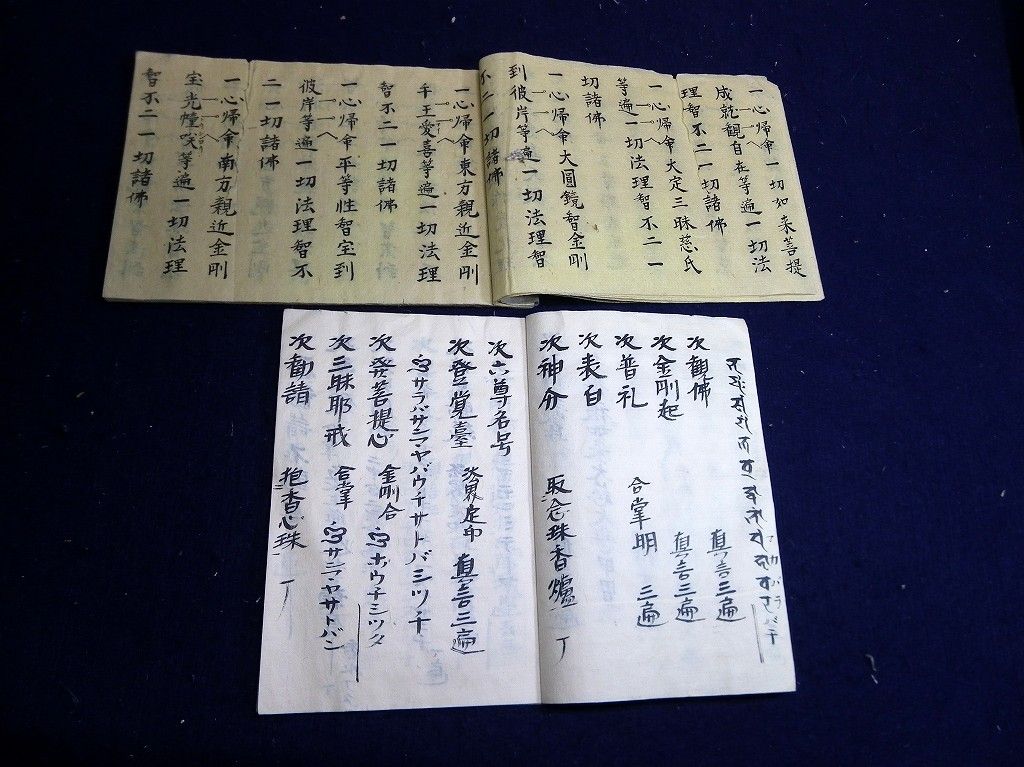 一心歸命一切如来菩提
成就觀自在等遍一切法
理智不二一切諸佛
一心歸命大定三昧慈氏
等遍一切法理智不二一
切諸佛
一心歸命大圓鏡智金剛
到彼岸等遍一切法理智
不二一切諸佛
一心歸命東方親近金剛
手王愛喜等遍一切法理
智不二一切諸佛
一心歸命平等性智宝到
彼岸等遍一切法理智不
二一切諸佛
一心歸命南方親近金剛
宝光幢咲等遍一切法理
智不二一切諸佛
次觀佛 真言三遍
次金剛起 真言三遍
次普礼 合掌明 三遍
次表白
次神分 取念珠香爐 丁
次六尊名号
次登覚臺 定印 真言三遍
サラバサンマヤバウチサトバミツチ
次発菩提心 金剛合 ボウチシツタ
次三昧耶戒 合掌 サンマヤサトバン
次勧請